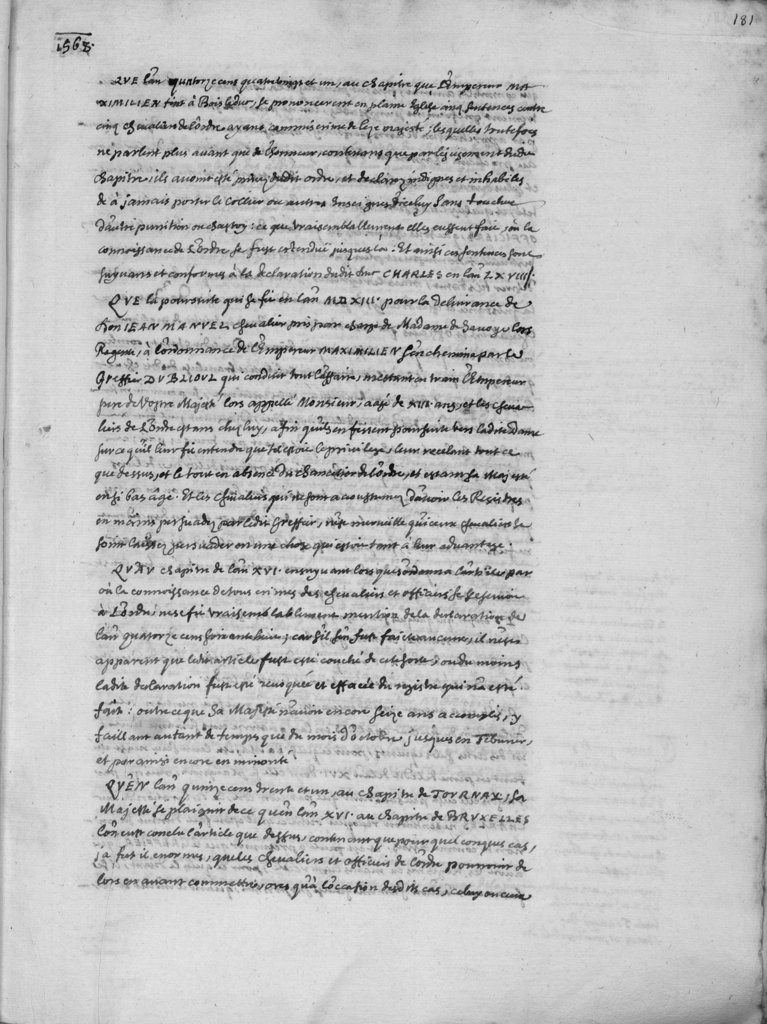 181
1567.
QVE l'an quatorze cens quatre vingts et un, au chapitre que l'Empereur MA-
XIMILIEN tint à Bois le duc, se prononcerent en plaine Eglise cinq sentences contre
cinq chevaliers de l'ordre ayans commis crime de leze majesté, lesquelles toutefois
ne parlent plus avant que de l'honneur, contenans que par les jugement dudit
chapitre, ils avoient esté privez dudit ordre, et declarez indignes et inhabiles
de à jamais porter le Collier ou autres Enseignes d'iceluy sans toucher
d'autre punition ou chastoy: ce que vraisemblablement elles eussent faict, où la
connoissance de l'ordre se fust estenduë jusques là. Et ainsi ces sentences sont
suyvans et conformes à la declaration dudit duc CHARLES en l'an LXVIII.
QVE la poursuite qui se fit en l'an MDXIII. pour la delivrance de
Don IEAN MANVEL chevalier pris par charge de Madame de Savoye lors
Regente, à l'ordonnance de l'Empereur MAXIMILIEN s'enchemina par le
Greffier DVBLIOVL qui conduit tout l'affaire, mettant en train l'Empereur
pere de Vostre Majesté lors appellé Monsieur, aagé de XIII. ans, et les cheva-
liers de l'ordre estans chez luy, afin qu'ils en fissent poursuite vers ladite Dame
sur ce qu'il leur fit entendre que tel estoit le privilege, leur recelant tout ce
que dessus, et le tout en absence du chancelier de l'ordre, et estant sa Majesté
en si bas aage. Et les chevaliers qui ne sont accoustumez d'avoir les Registres
en mains persuadez par ledit Greffier, n'est merveille qu'iceux chevaliers se
sont laissez persuader en une chose qui estoit tant à leur advantage.
QV'AV chapitre de l'an XVI. ensuyvant lors que s'ordonna l'article par
où la connoissance de tous crimes des chevaliers et officiers se reservoit
à l'ordre, ne se fit vraisemblablement mention de la declaration de
l'an quatorze cens soixante huict; car s'il s'en fust faicte aucune, il n'est
apparent que ledit article fust esté couché de cete sorte, ou du moins
ladite declaration fust esté revoquée et effacée du registre qui n'a esté
faict: outre ce que sa Majesté n'avoit encore seize ans accomplis, y
faillant autant de temps que du mois d'octobre jusques en Febvrier,
et par ainsi encore en minorité.
QV'EN l'an quinze cens trente et un, au chapitre de TOVRNAY, sa
Majesté se plaignit de ce qu'en l'an XVI. au chapitre de BRVXELLES
l'on eust conclu l'article que dessus, contenant que pour quelconques cas,
ja fut il enormes, que les chevaliers et officiers de l'ordre pourroient de
lors en avant commettre, ores qu'à l'occasion desdits cas, celuy ou ceux